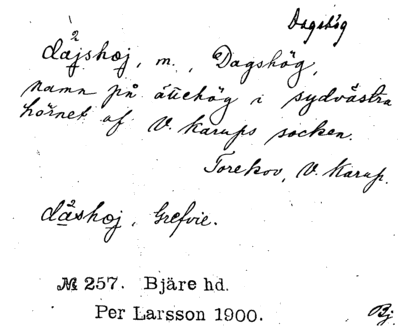 Dagshög
dåjshøj, m., Dagshög,
namn på ättehög i sydvästra
hörnet af V. Karups socken.
Torekov, V. Karup.
dåshøj, Grefvie.
№ 257. Bjäre hd.
Per Larsson 1900.
Bj.